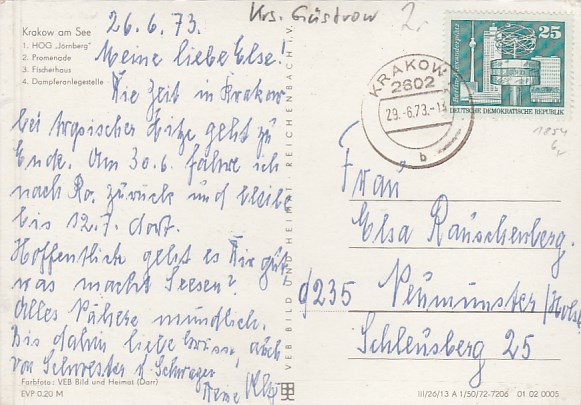 Krakow am See
1. HOG „Jörnberg"
2. Promenade
3. Fischerhaus
4. Dampferanlegestelle
Krs. Güstrow
2.
26.6.73.
Meine liebe Else.
Die Zeit in Krakow
bei tropischer Hitze geht zu
Ende. Am 30.6. fahre ich
nach Ro. zurück und bleibe
bis 12.7. dort.
Hoffentlich geht es Dir gut,
was macht Seesen?
Alles Nähere mündlich.
Bis dahin liebe Grüsse, auch
von Schwester & Schwager
Deine
Farbfoto: VEB Bild und Heimat (Darr)
EVP 0.20 M
VEB BILD UND HEIMAT REICHENBACH i. V.
KRAKOW
2602
29.-6.73.-1
b
25
Berlin, Alexanderplatz
DEUTSCHE DEMOKRATISCHE REPUBLIK
1854
Frau
Elsa Rauschenberg.
d235 Neumünster/Holst
Schleusberg 25
III/26/13 A 1/50/72-7206 01 02 0005